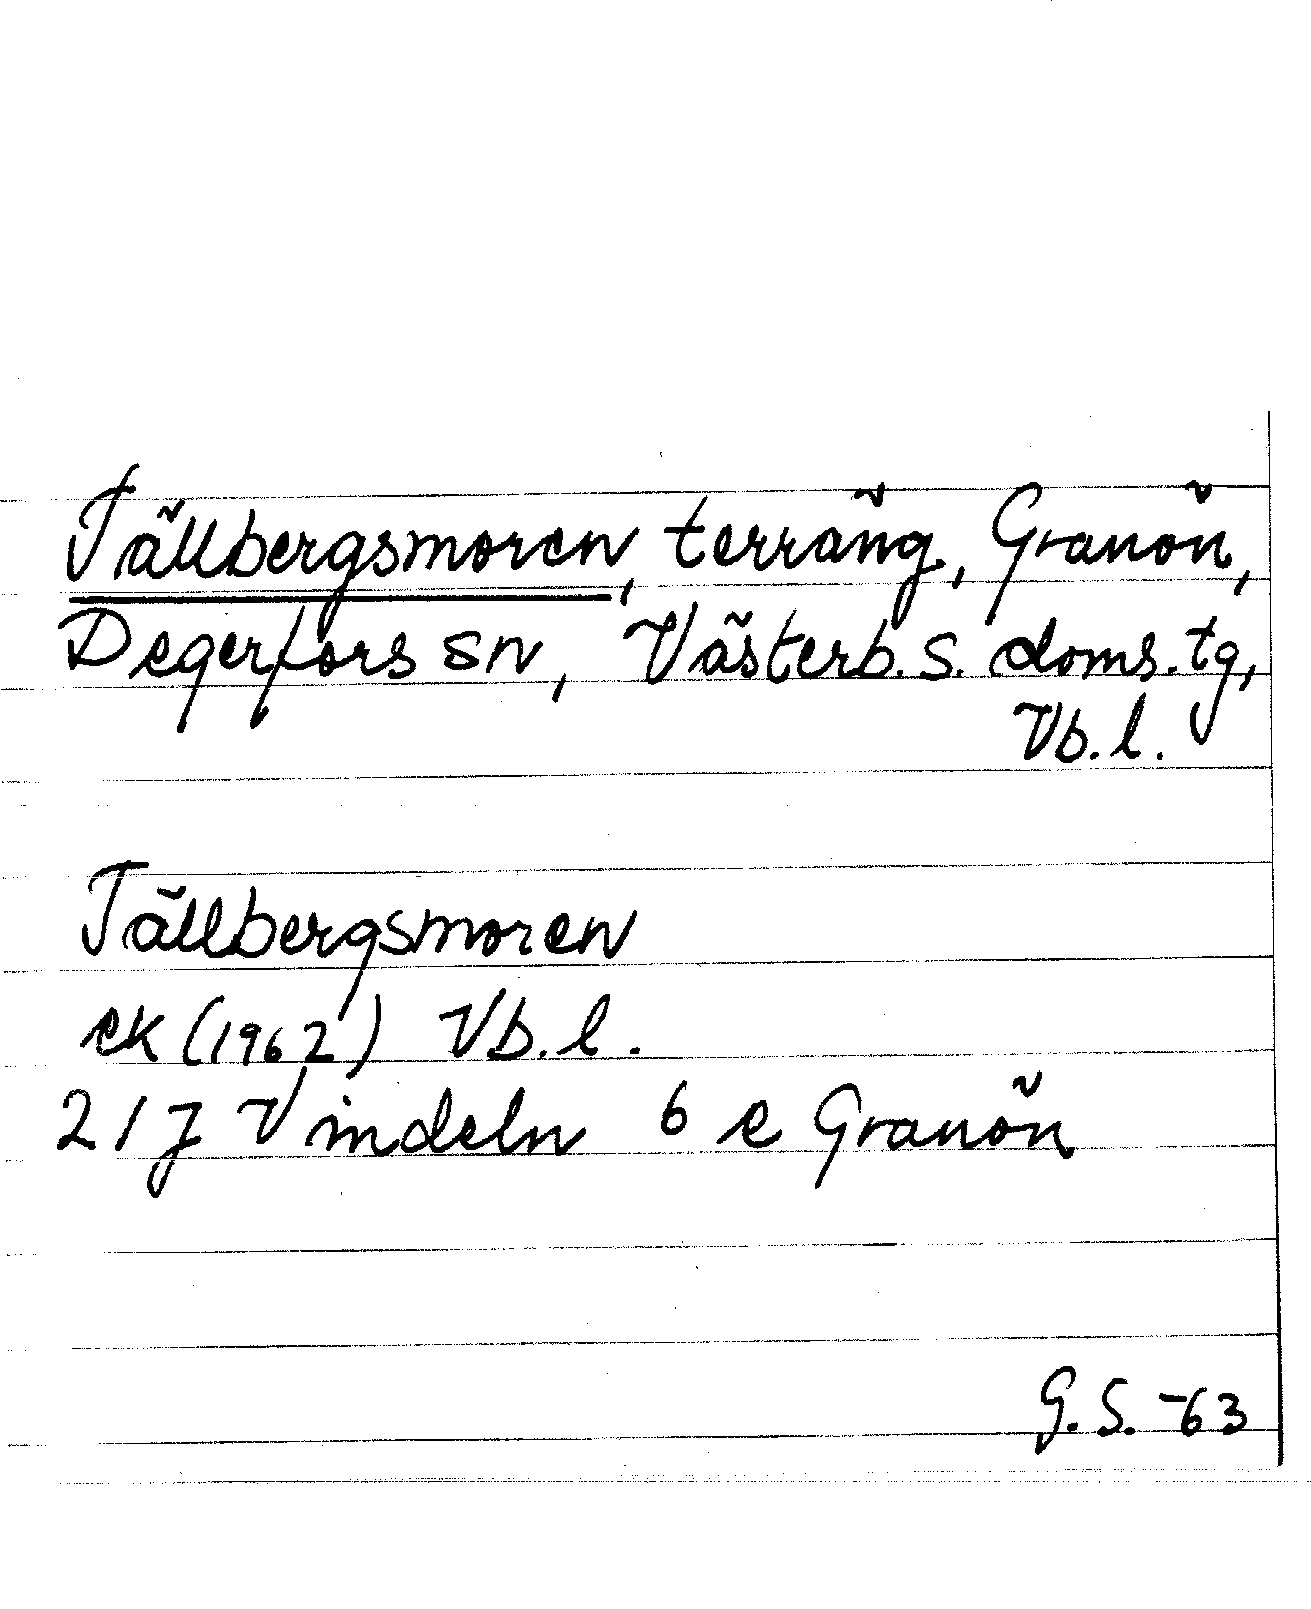 Tällbergsmoren, terräng, Granön,
Degerfors sn, Västerb. s. doms. tg,
Vb. l.
Tällbergsmoren
ek (1962) Vb. l.
21 J Vindeln 6 e Granön
G. S. -63